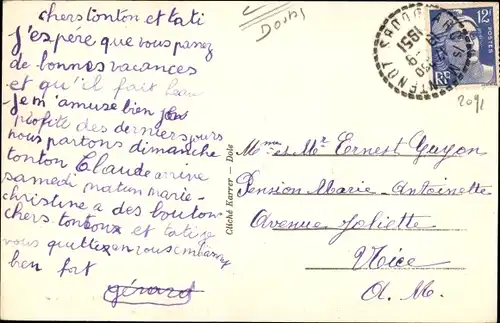 chers tonton et tati
j'espére que vous passez
de bonnes vacances
et qu'il fait beau
je m'amuse bien je
profite des derniers jours
nous partons dimanche
tonton Claude arrive
samedi matin marie-
christine a des bouton
chers tonton et tatie
vous quittez en vous embrassez
bien fort
gérard
Doubs
1951
12F
POSTES
RF
2091
Cliché Karrer - Dole
Mme et Mr Ernest Guyon
Pension Marie-Antoinette
Avenue Joliette
Nice
A. M.